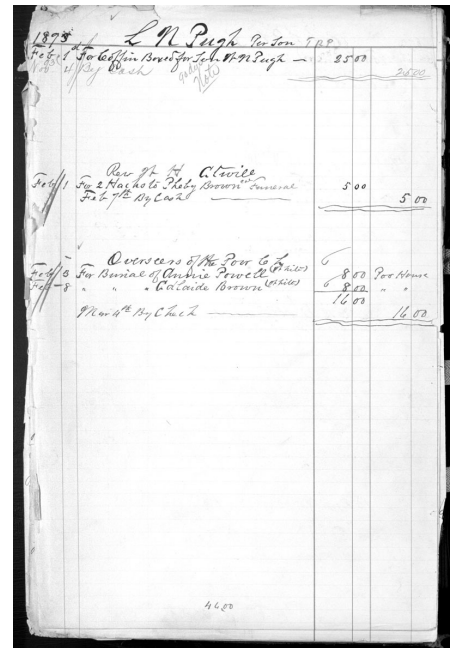 1898 L N Pugh Per Son T.B.P.
Feb 1st For Coffin Boxed for Son W N Pugh — 25 00
By Cash 25 00
Note
Rev W H
Feb 1 For 2 Hacks to Pheby Brown Funeral 5 00
Feb 7th By Cash — 5 00
Overseers of the Poor E
Feb 3 For Burial of Annie Powell (White) 6 8 00 Poor House
Feb - 8 " " " Adelaide Brown (White) 6 8 00 " "
16 00
Mar 4th By Check — 16 00
46 00